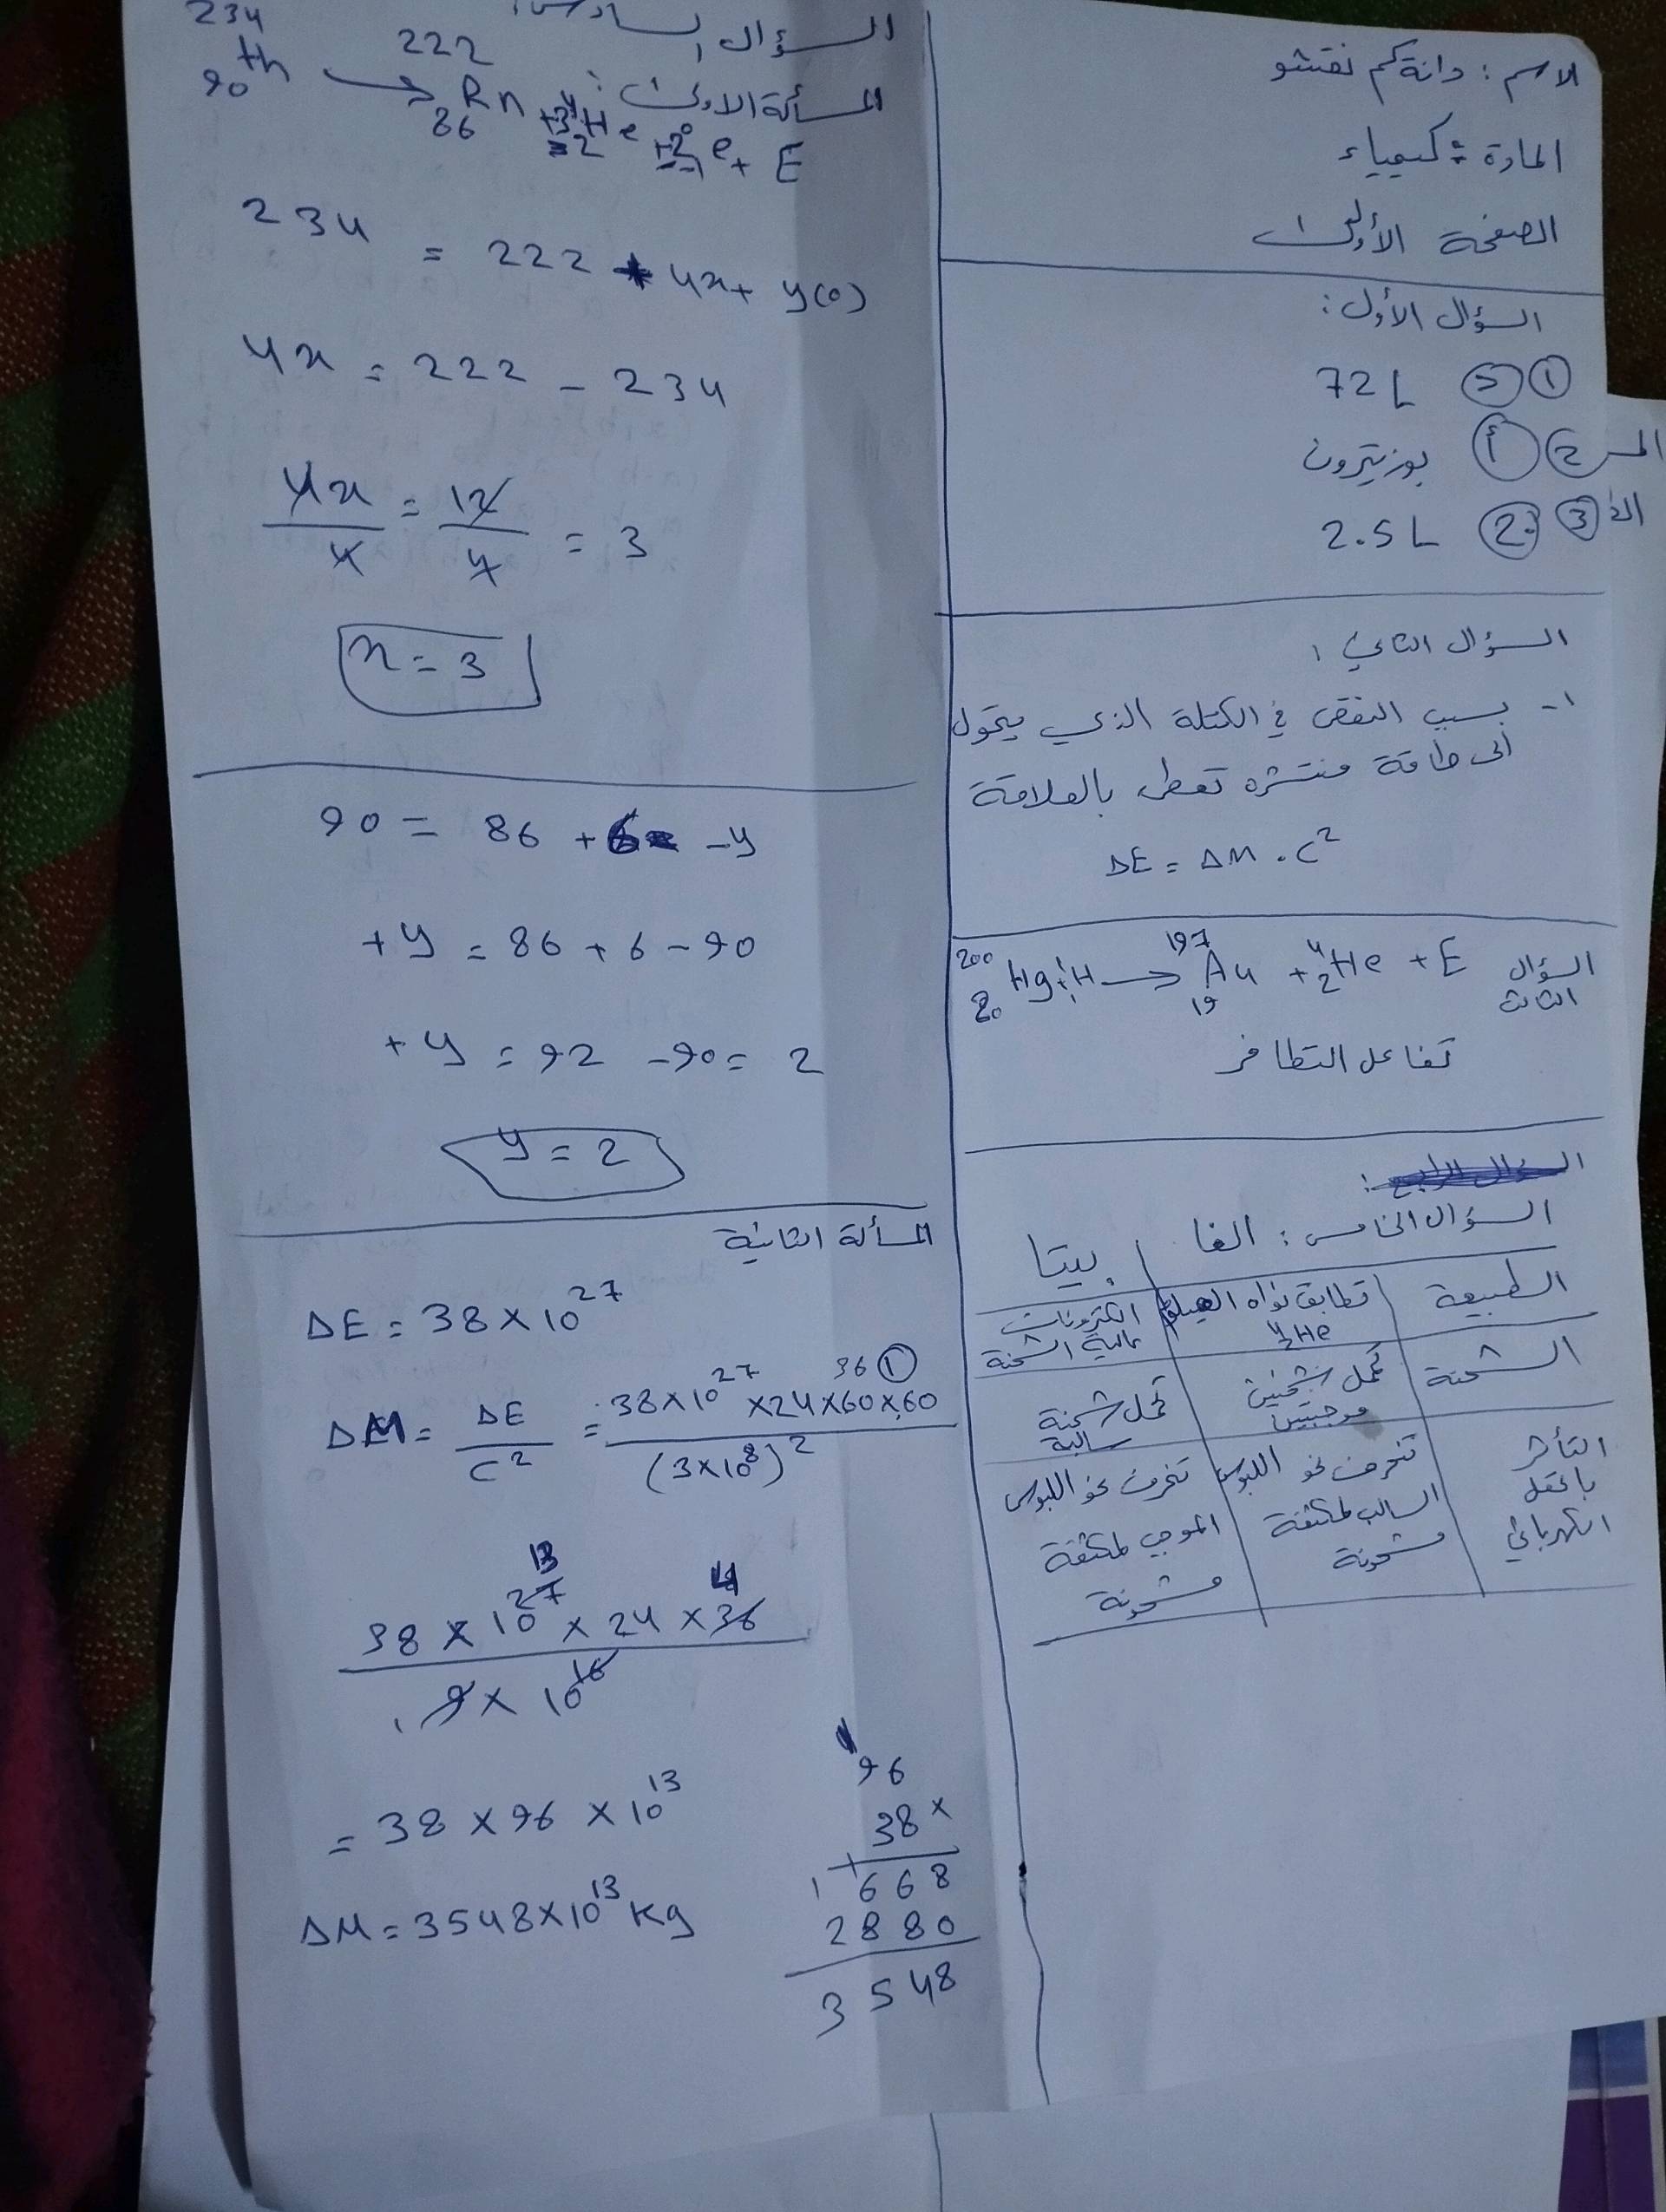 الاسم : دانة كم نقشو
المادة : كيمياء
الصفحة الأولى
السؤال الأول :
① 72 L
② أ بوزيترون
③ 2.5 L
السؤال الثاني :
1- بسبب النقص في الكتلة الذي يتحول
الى طاقة منتشره تعطى بالعلاقة
ΔE = ΔM . C²
السؤال الثالث ²⁰⁰₈₀Hg + ¹₁H → ¹⁹⁷₁₉Au + ⁴₂He + E
تفاعل التطافر
السؤال الخامس : الفا | بيتا
الطبيعة | تطابق نواه الهيليوم ⁴₂He | الكترونات عالية الشحنة
الشحنة | تحمل شحنتين موجبتين | تحمل شحنة سالبة
التأثر بالحقل الكهربائي | تنحرف نحو اللبوس السالب لمكثفة مشحونة | تنحرف نحو اللبوس الموجب لمكثفة مشحونة
السؤال السادس :
المسألة الاولى :
²³⁴₉₀Th → ²²²₈₆Rn +3⁴₂He +2⁰₋₁e + E
234 = 222 + 4x + y(0)
4x = 222 - 234
4x/4 = 12/4 = 3
x = 3
90 = 86 + 6 - y
+y = 86 + 6 - 90
+y = 92 - 90 = 2
y = 2
المسألة الثانية
ΔE = 38 × 10²⁷
ΔM = ΔE/C² = 38×10²⁷ ×24×60×60 / (3×10⁸)²
38 × 10²⁷ × 24 × 36 / 9 × 10¹⁶
= 38 × 96 × 10¹³
ΔM = 3548 × 10¹³ kg
96
38 ×
1668
2880
3548